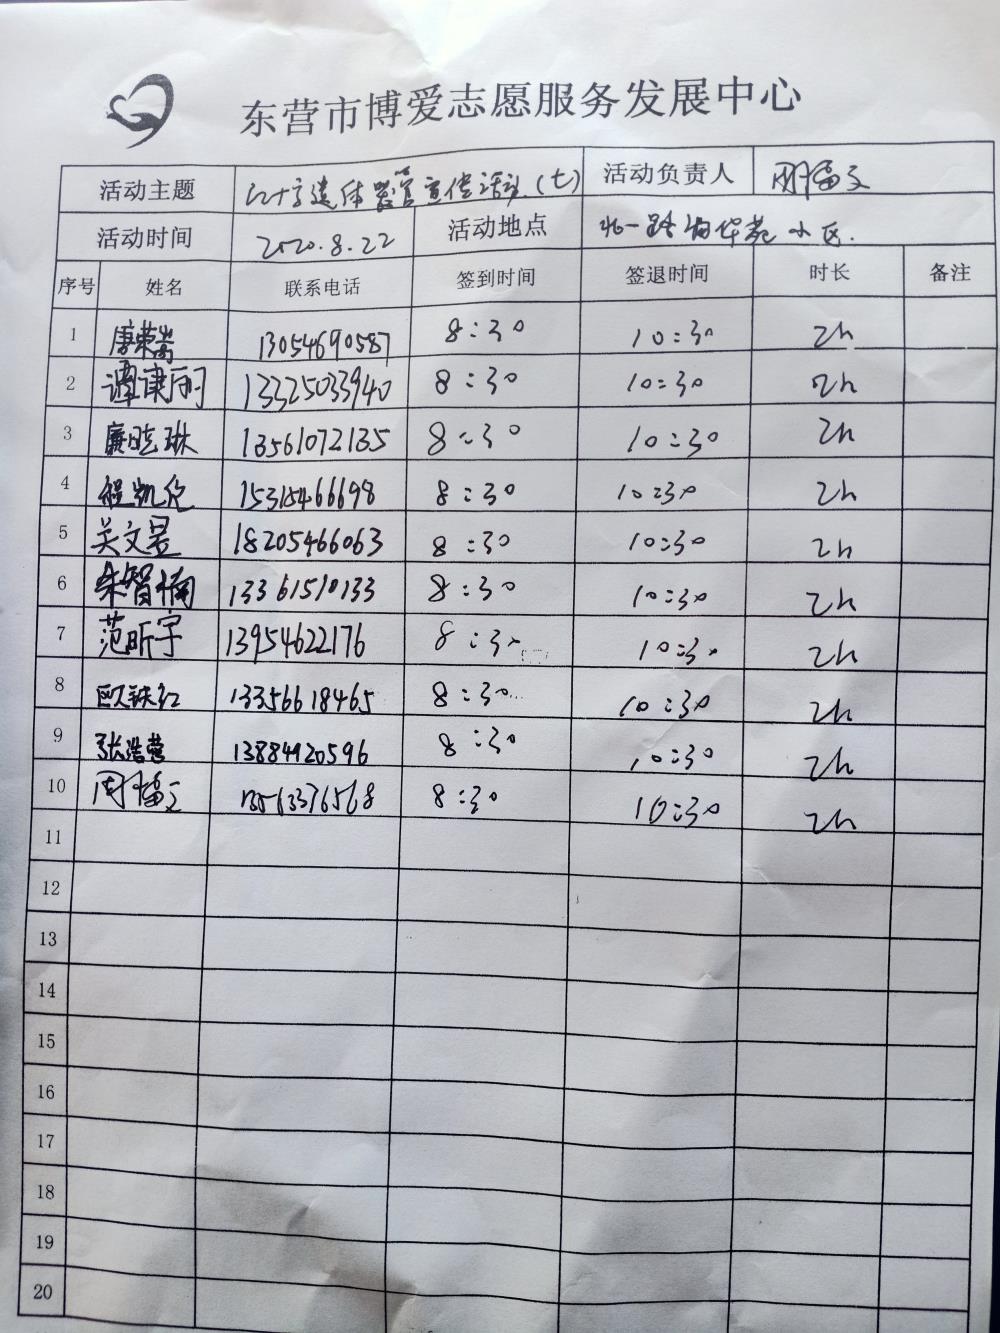 东营市博爱志愿服务发展中心
活动主题 红十字遗体器官宣传活动(七) 活动负责人 周福文
活动时间 2020.8.22 活动地点 北一路海华苑小区.
序号 姓名 联系电话 签到时间 签退时间 时长 备注
1 唐荣嵩 13054690587 8:30 10:30 2h
2 谭康丽 13325033940 8:30 10:30 2h
3 廉晓琳 13561072135 8:30 10:30 2h
4 程凯伦 15315466698 8:30 10:30 2h
5 关文昊 18205466063 8:30 10:30 2h
6 朱智楠 13361510133 8:30 10:30 2h
7 范昕宇 13954622176 8:30 10:30 2h
8 欧铁红 13356618465 8:30 10:30 2h
9 张浩营 13884920596 8:30 10:30 2h
10 周福文 13563376568 8:30 10:30 2h
11
12
13
14
15
16
17
18
19
20